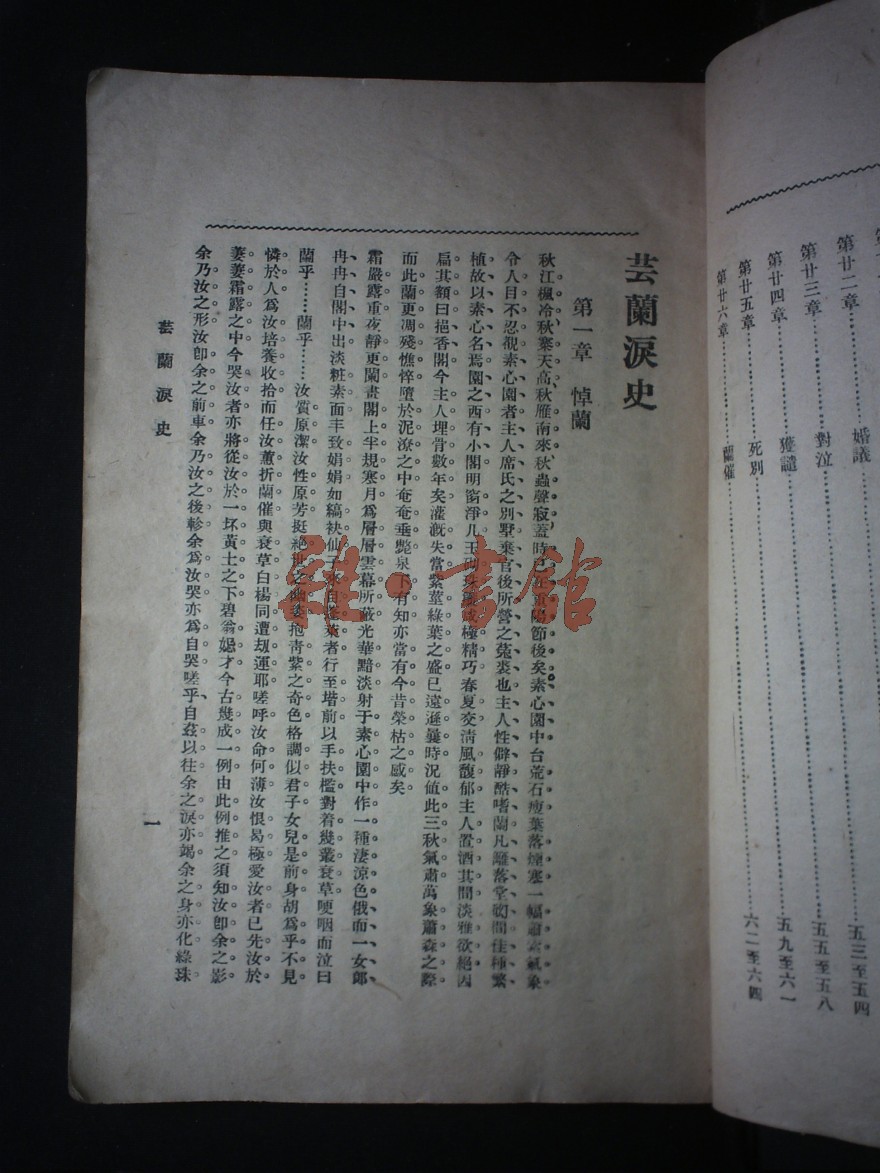 第廿二章 婚議 五三至五四
第廿三章 對泣 五五至五八
第廿四章 獲譴 五九至六一
第廿五章 死別 六二至六四
第廿六章 蘭催
芸蘭淚史
第一章 悼蘭
秋江楓冷秋寒天高秋雁南來秋蟲聲寂蓋時已在重陽節後矣素心園中台荒石瘦葉落煙寒一幅肅殺氣象
令人目不忍覩素心園者主人席氏之別墅棄官後所營之菟裘也主人性僻靜酷嗜蘭凡籬落堂砌間佳種繁
植故以素心名焉園之西有小閣明窗淨几玉砌珠簾咸極精巧春夏交淸風馥郁主人置酒其間淡雅欲絕因
扁其額曰挹香閣今主人埋骨數年矣灌漑失當紫莖綠葉之盛已遠遜曩時況値此三秋氣肅萬象蕭森之際
而此蘭更凋殘憔悴墮於泥潦之中奄奄垂斃泉下有知亦當有今昔榮枯之感矣
霜嚴露重夜靜更闌畫閣上半規寒月爲層層雲幕所蔽光華黯淡射于素心園中作一種淒涼色俄而一女郎
冉冉自閣中出淡粧素面丰致娟娟如縞袂仙子來自蕊葉者行至堦前以手扶檻對着幾叢衰草哽咽而泣曰
蘭乎……蘭乎……汝質原潔汝性原芳挺絕世之幽姿抱靑紫之奇色格調似君子女兒是前身胡爲乎不見
憐於人爲汝培養收拾而任汝蕙折蘭催與衰草白楊同遭刼運耶嗟呼汝命何薄汝恨曷極愛汝者已先汝於
萋萋霜露之中今哭汝者亦將從汝於一坏黃土之下碧翁媢才今古幾成一例由此例推之須知汝卽余之影
余乃汝之形汝卽余之前車余乃汝之後軫余爲汝哭亦爲自哭嗟乎自玆以往余之淚亦竭余之身亦化綠珠
芸蘭淚史
一
雜·書館